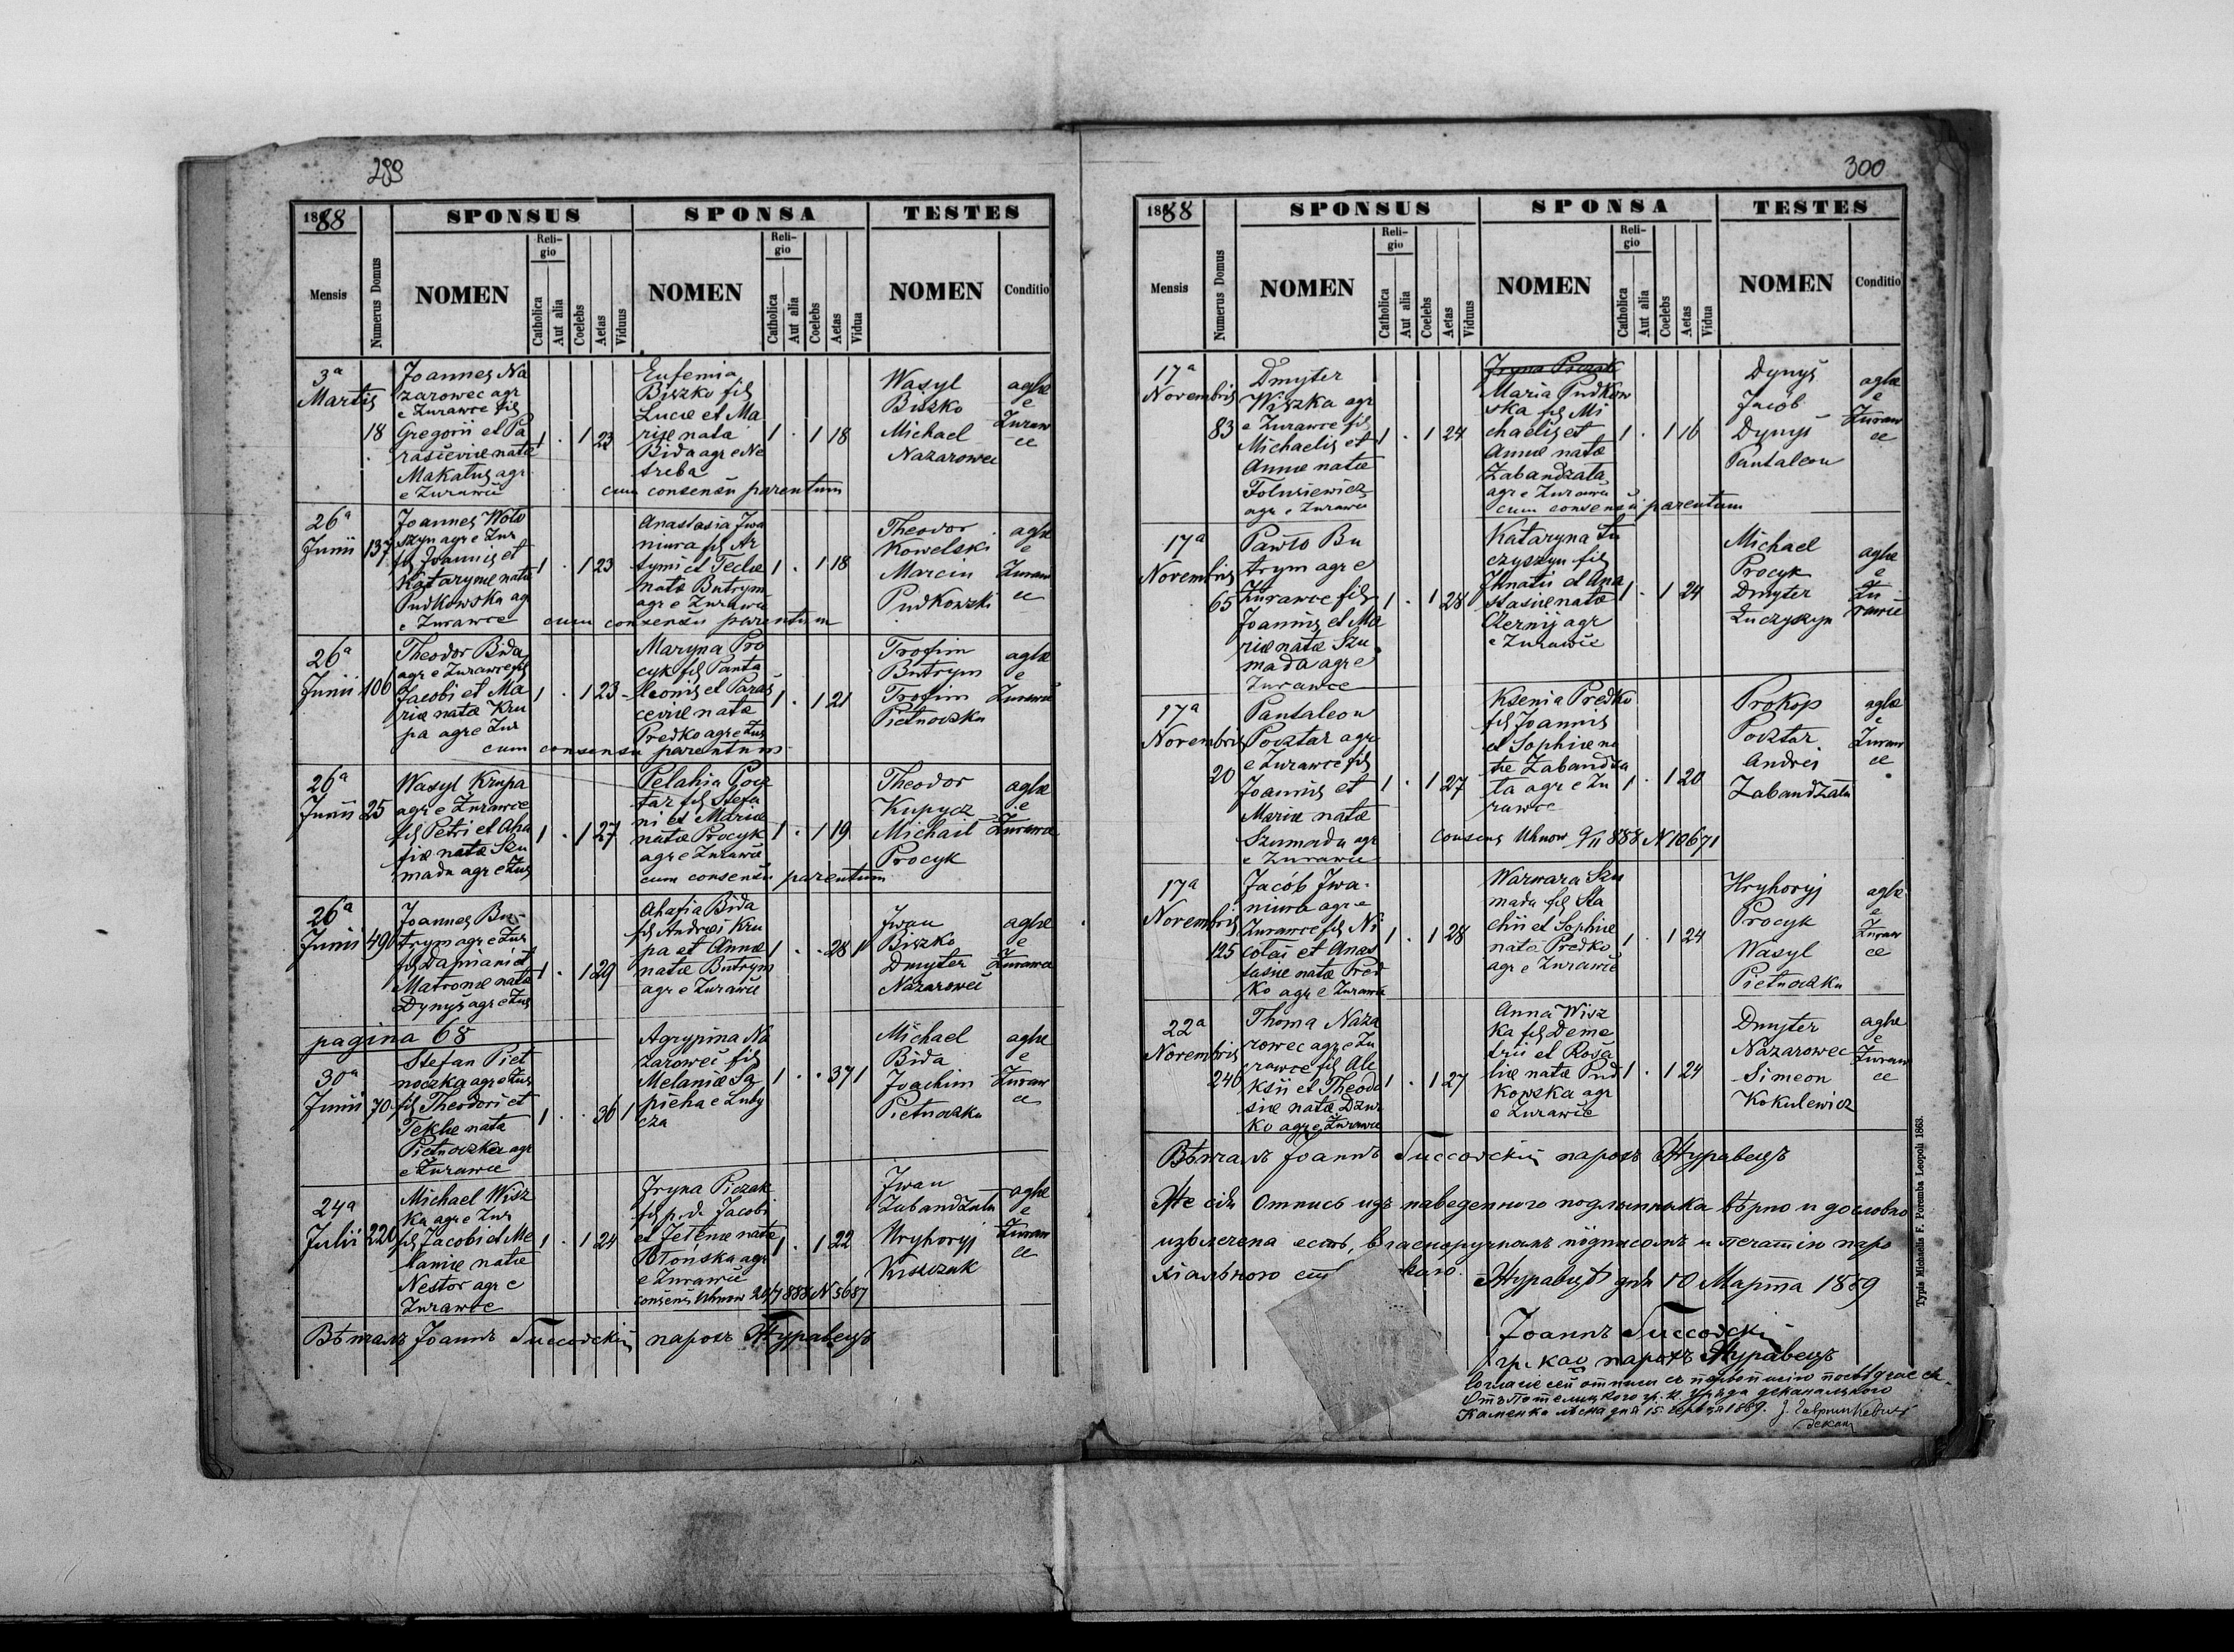 299
1888
SPONSUS
SPONSA
TESTES
Mensis
Numerus Domus
NOMEN
Religio
Catholica
Aut alia
Coelebs
Aetas
Viduus
NOMEN
Religio
Catholica
Aut alia
Coelebs
Aetas
Vidua
NOMEN
Conditio
3a
Martis
18
Joannes Na
zarowec agr
e Zurawce fil
Gregorii et Pa
rasieviæ natæ
Makatus agr
e Zurawce
1 . 1 23
Eufemia
Biszko fil
Lucæ et Ma
riæ nata
Bida agr e Ne
sreba
cum consensu parentum
1 . 1 18
Wasyl
Biszko
Michael
Nazarowec
aglæ
e
Zuraw
ce
26a
Junii
137
Joannes Woło
szyn agr e Zur
fil Joannis et
Katarynæ natæ
Pudkowska ag
e Zurawce
1 . 1 23
Anastasia Iwa
niura fil Ar
tymi et Teclæ
natæ Butrym
agr e Zurawce
cum consensu parentum
1 . 1 18
Theodor
Kowelski
Marcin
Pudkowski
aglæ
e
Zuraw
ce
26a
Junii
106
Theodor Bida
agr e Zurawce fil
Jacobi et Ma
riæ natæ Kru
pa agr e Zur
1 . 1 23
Maryna Pro
cyk fil Panta
leonis et Paras
ceviæ natæ
Predko agr e Zur
cum consensu parentum
1 . 1 21
Trofim
Butrym
Trofim
Pietnoczka
aglæ
e
Zurawce
26a
Junii
25
Wasyl Krupa
agr e Zurawce
fil Petri et Aha
fiæ natæ Szu
mada agr e Zur
1 . 1 27
Pelahia Pocz
tar fil Stefa
ni et Mariæ
natæ Procyk
agr e Zurawce
cum consensu parentum
1 . 1 19
Theodor
Kupycz
Michail
Procyk
aglæ
e
Zurawce
26a
Junii
490
Joannes Bu-
trym agr e Zur
fil Damiani et
Matronæ natæ
Dynys agr e Zur
1 . 1 29
Ahafia Bida
fil Andrei Kru
pa et Annæ
natæ Butrym
agr e Zurawce
1 . . 28 1
Iwan
Biszko
Dmyter
Nazarowec
aglæ
e
Zurawce
pagina 68
30a
Junii
70
Stefan Piet
noczka agr e Zur
fil Theodori et
Teklæ nata
Pietnoczka agr
e Zurawce
1 . . 36 1
Agrypina Na
zarowec fil
Melaniæ Sa
pieha e Luby
cza
1 . . 37 1
Michael
Bida
Joachim
Pietnoczka
aglæ
e
Zuraw
ce
24a
Julii
220
Michael Wisz
ka agr e Zur
fil Jacobi et Me
laniæ natæ
Nestor agr e
Zurawce
1 . 1 24
Iryna Piczak
fil p.d. Jacobi
et Jelenæ natæ
agr
e Zurawce
consens Uhnow 24/7 888 N 5687
1 . 1 22
Iwan
Zabandzała
Hryhoryj
aglæ
e
Zuraw
ce
Вѣнчалъ Іоаннъ парохъ Журавецъ
300
1888
SPONSUS
SPONSA
TESTES
Mensis
Numerus Domus
NOMEN
Religio
Catholica
Aut alia
Coelebs
Aetas
Viduus
NOMEN
Religio
Catholica
Aut alia
Coelebs
Aetas
Vidua
NOMEN
Conditio
17a
Novembris
83
Dmyter
Wiszka agr
e Zurawce fil
Michaelis et
Annæ natæ
Folusiewicz
agr e Zurawce
1 . 1 24
Iryna Piczak
Maria Pudkow
ska fil Mi
chaelis et
Annæ natæ
Zabandzała
agr e Zurawce
cum consensu parentum
1 . 1 16
Dynys
Jacob
Dynys
Pantaleon
aglæ
e
Zuraw
ce
17a
Novembris
65
Pawlo Bu
trym agr e
Zurawce fil
Joannis et Ma
riæ natæ Szu
mada agr e
Zurawce
1 . 1 28
Kataryna Łu
czyszyn fil
Ihnatii et Ana
stasiæ natæ
Czernij agr
e Zurawce
1 . 1 24
Michael
Procyk
Dmyter
Łuczyszyn
aglæ
e
Zu
rawce
17a
Novembris
20
Pantaleon
Pocztar agr
e Zurawce fil
Joannis et
Mariæ natæ
Szumada agr
e Zurawce
1 . 1 27
Ksenia Predko
fil Joannis
et Sophiæ na
tæ Zabandza
ła agr e Zu
rawce
consens Uhnow 9/11 888 N 10671
1 . 1 20
Prokop
Pocztar
Andrei
Zabandzała
aglæ
e
Zuraw
ce
17a
Novembris
125
Jacób Iwa-
niura agr e
Zurawce fil Ni
colai et Anas
tasiæ natæ Pred
ko agr e Zurawce
1 . 1 28
Warwara Szu
mada fil Sta
chii et Sophiæ
natæ Predko
agr e Zurawce
1 . 1 24
Hryhoryj
Procyk
Wasyl
Pietnoczka
aglæ
e
Zuraw
ce
22a
Novembris
246
Thoma Naza
rowec agr e Zu
rawce fil Ale
ksii et Theodo
siæ natæ Dziur
ko agr e Zurawce
1 . 1 27
Anna Wisz
ka fil Deme
trii et Rosa
liæ natæ Pud
kowska agr
e Zurawce
1 . 1 24
Dmyter
Nazarowec
Simeon
Kokulewicz
aglæ
e
Zuraw
ce
Вѣнчалъ Іоаннъ парохъ Журавецъ
Же сія Отпись изъ наведенного подлинника вѣрно и дословно
извлечена есть, власноручнымъ подписомъ и печатію паро
хіального
Журавцѣ дня 10 Марта 1889
Іоаннъ
гр. кат парохъ Журавецъ
Каменка дня 15 1889.
декан
Typis Michaelis F. Poremba Leopoli 1863.